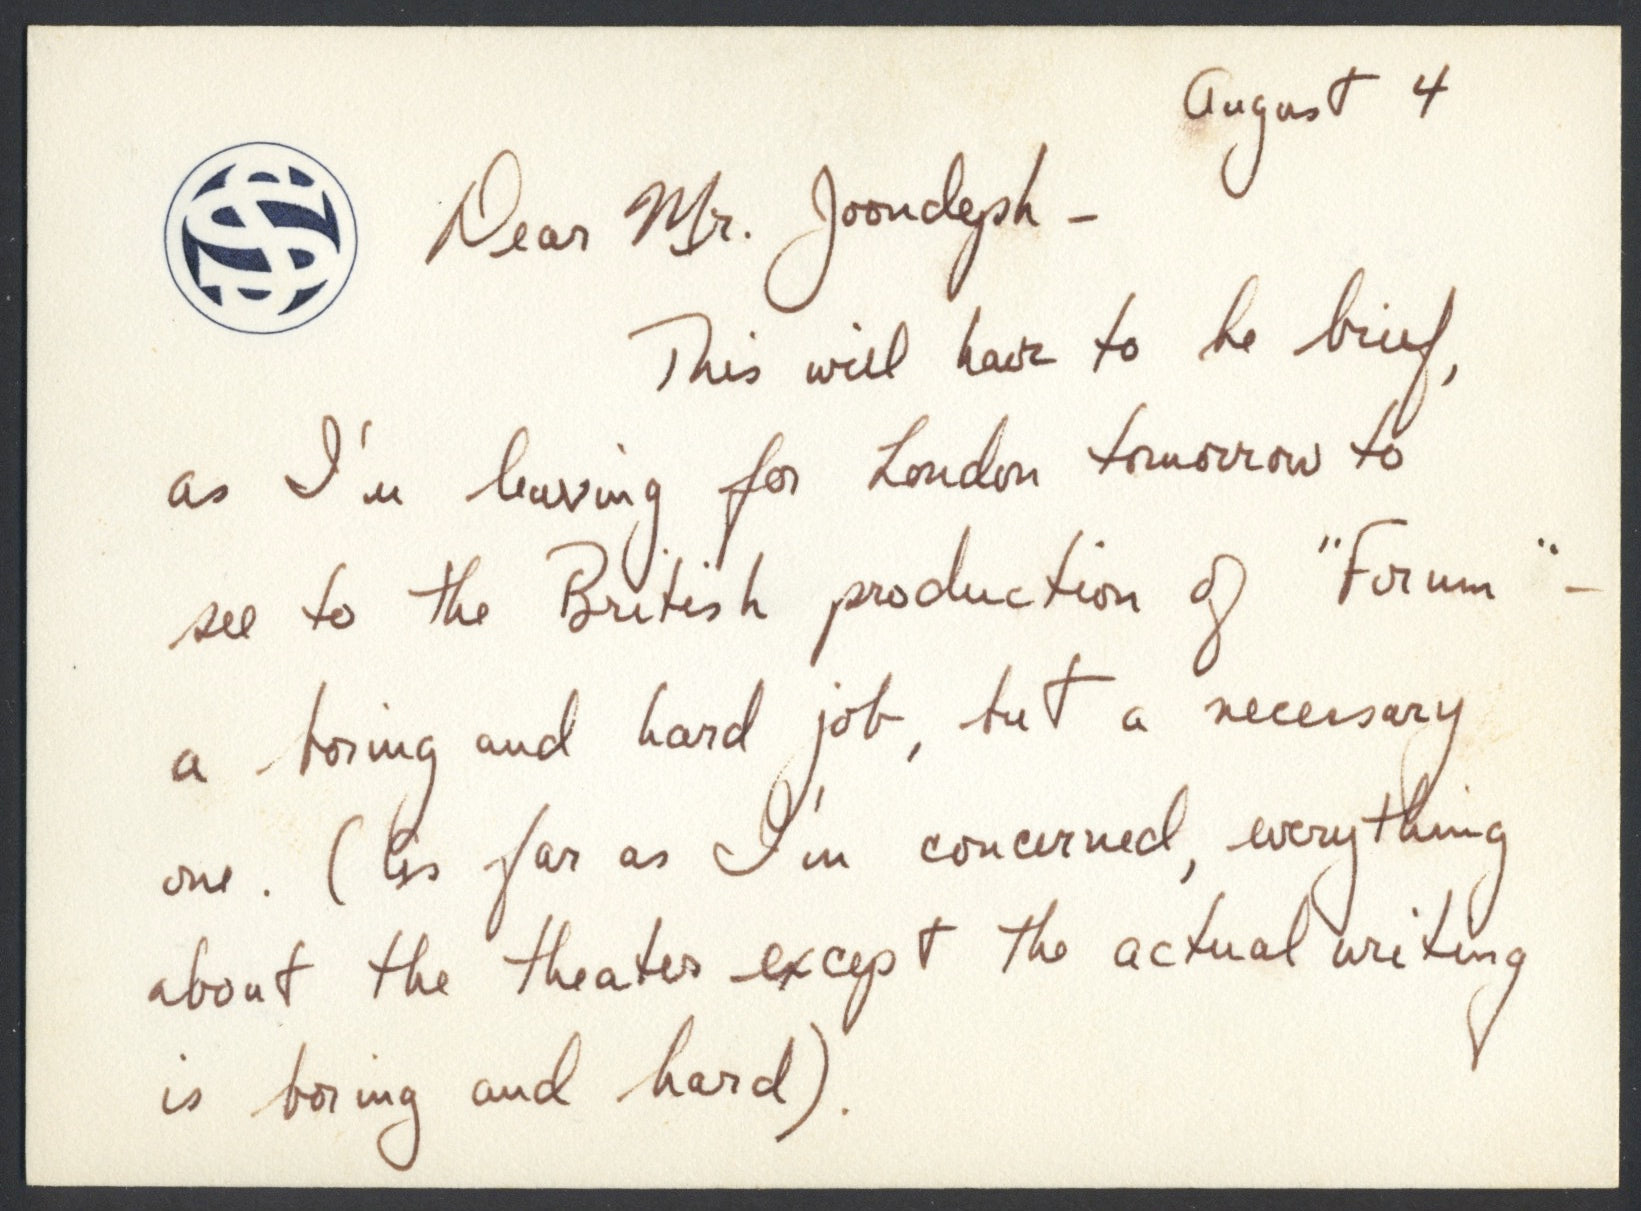 August 4
Dear Mr. Joondeph –
This will have to be brief,
as I'm leaving for London tomorrow to
see to the British production of "Forum" –
a boring and hard job, but a necessary
one. (As far as I'm concerned, everything
about the theater except the actual writing
is boring and hard).